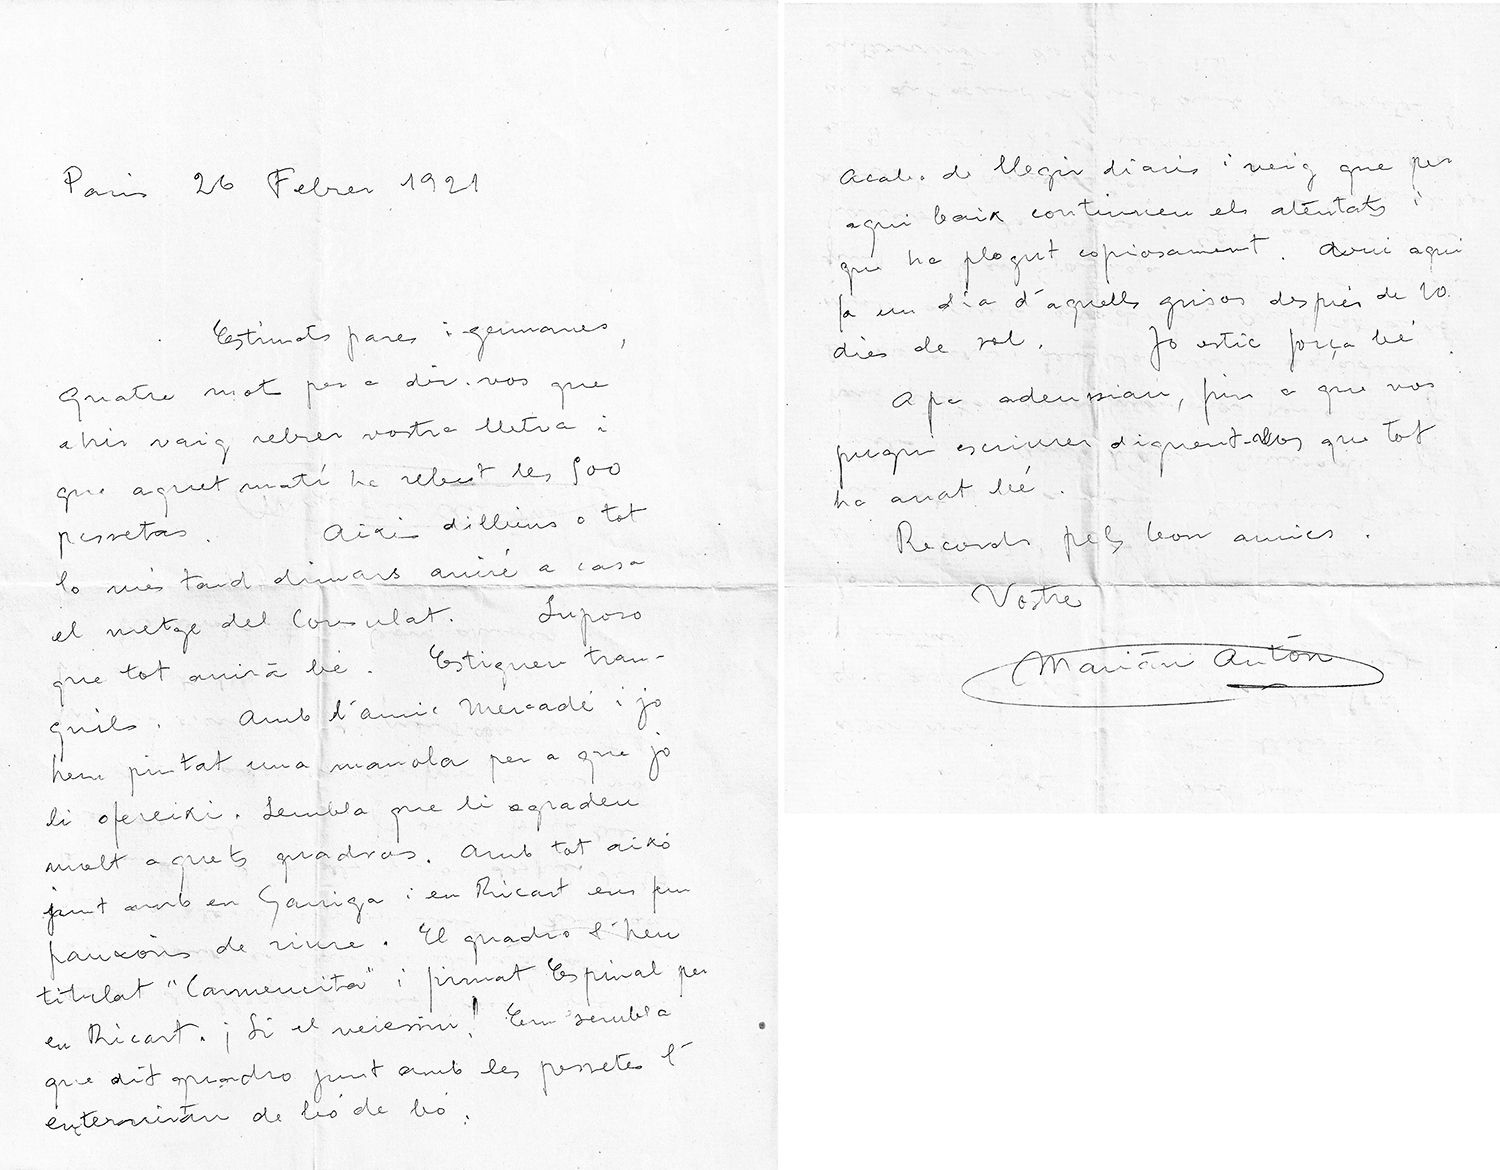 Paris 26 Febrer 1921
Estimats pares i germanes,
Quatre mot per a dir-vos que
ahir vaig rebrer vostra lletra i
que aquet matí he rebut les 500
pessetas. Aixi dilluns o tot
lo més tard dimars aniré a casa
el metge del Consulat. Suposo
que tot anirà bé. Estigueu tran-
quils. Amb l'amic Mercadé i jo
hem pintat una manola per a que jo
li ofereixi. Sembla que li agraden
molt aquets quadros. Amb tot això
junt amb en Garriga i en Ricart ens fem
panxóns de riure. El quadro l'hem
titulat "Carmencita" i firmat Espinal per
en Ricart. ¡Si el veiessiu! Em sembla
que dit quadro junt amb les pessetes l'
enterniràn de bó de bó.
Acabo de llegir diaris i veig que per
aqui baix continuen els atentats i
que ha plogut copiosament. Avui aqui
fa un dia d'aquells grisos després de 10
dies de sol. Jo estic força bé.
Apa adeussiau, fins a que vos
pugui escriurer diguent-vos que tot
ha anat bé.
Records pels bon amics.
Vostre
Marián Antón